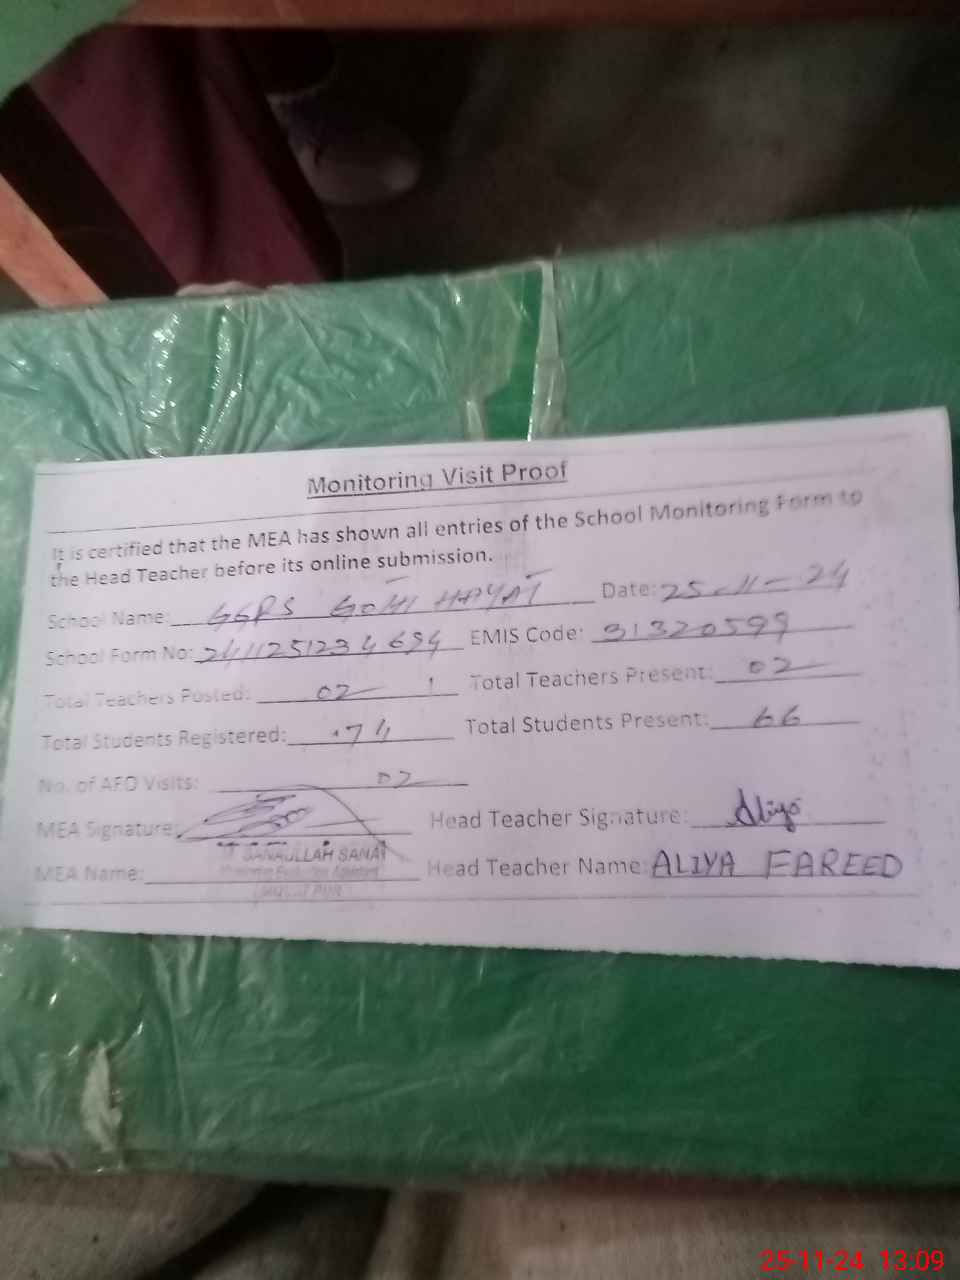 Monitoring Visit Proof
It is certified that the MEA has shown all entries of the School Monitoring Form to
the Head Teacher before its online submission.
School Name: GGPS GOHI HAYAT Date: 25-11-24
School Form No: EMIS Code: 31320599
Total Teachers Posted: 02 Total Teachers Present: 02
Total Students Registered: 74 Total Students Present: 66
No. of AEO Visits: 02
MEA Signature: Head Teacher Signature: Aliya
SANAULLAH SANAI
MEA Name: Head Teacher Name: ALIYA FAREED
25-11-24 13:09